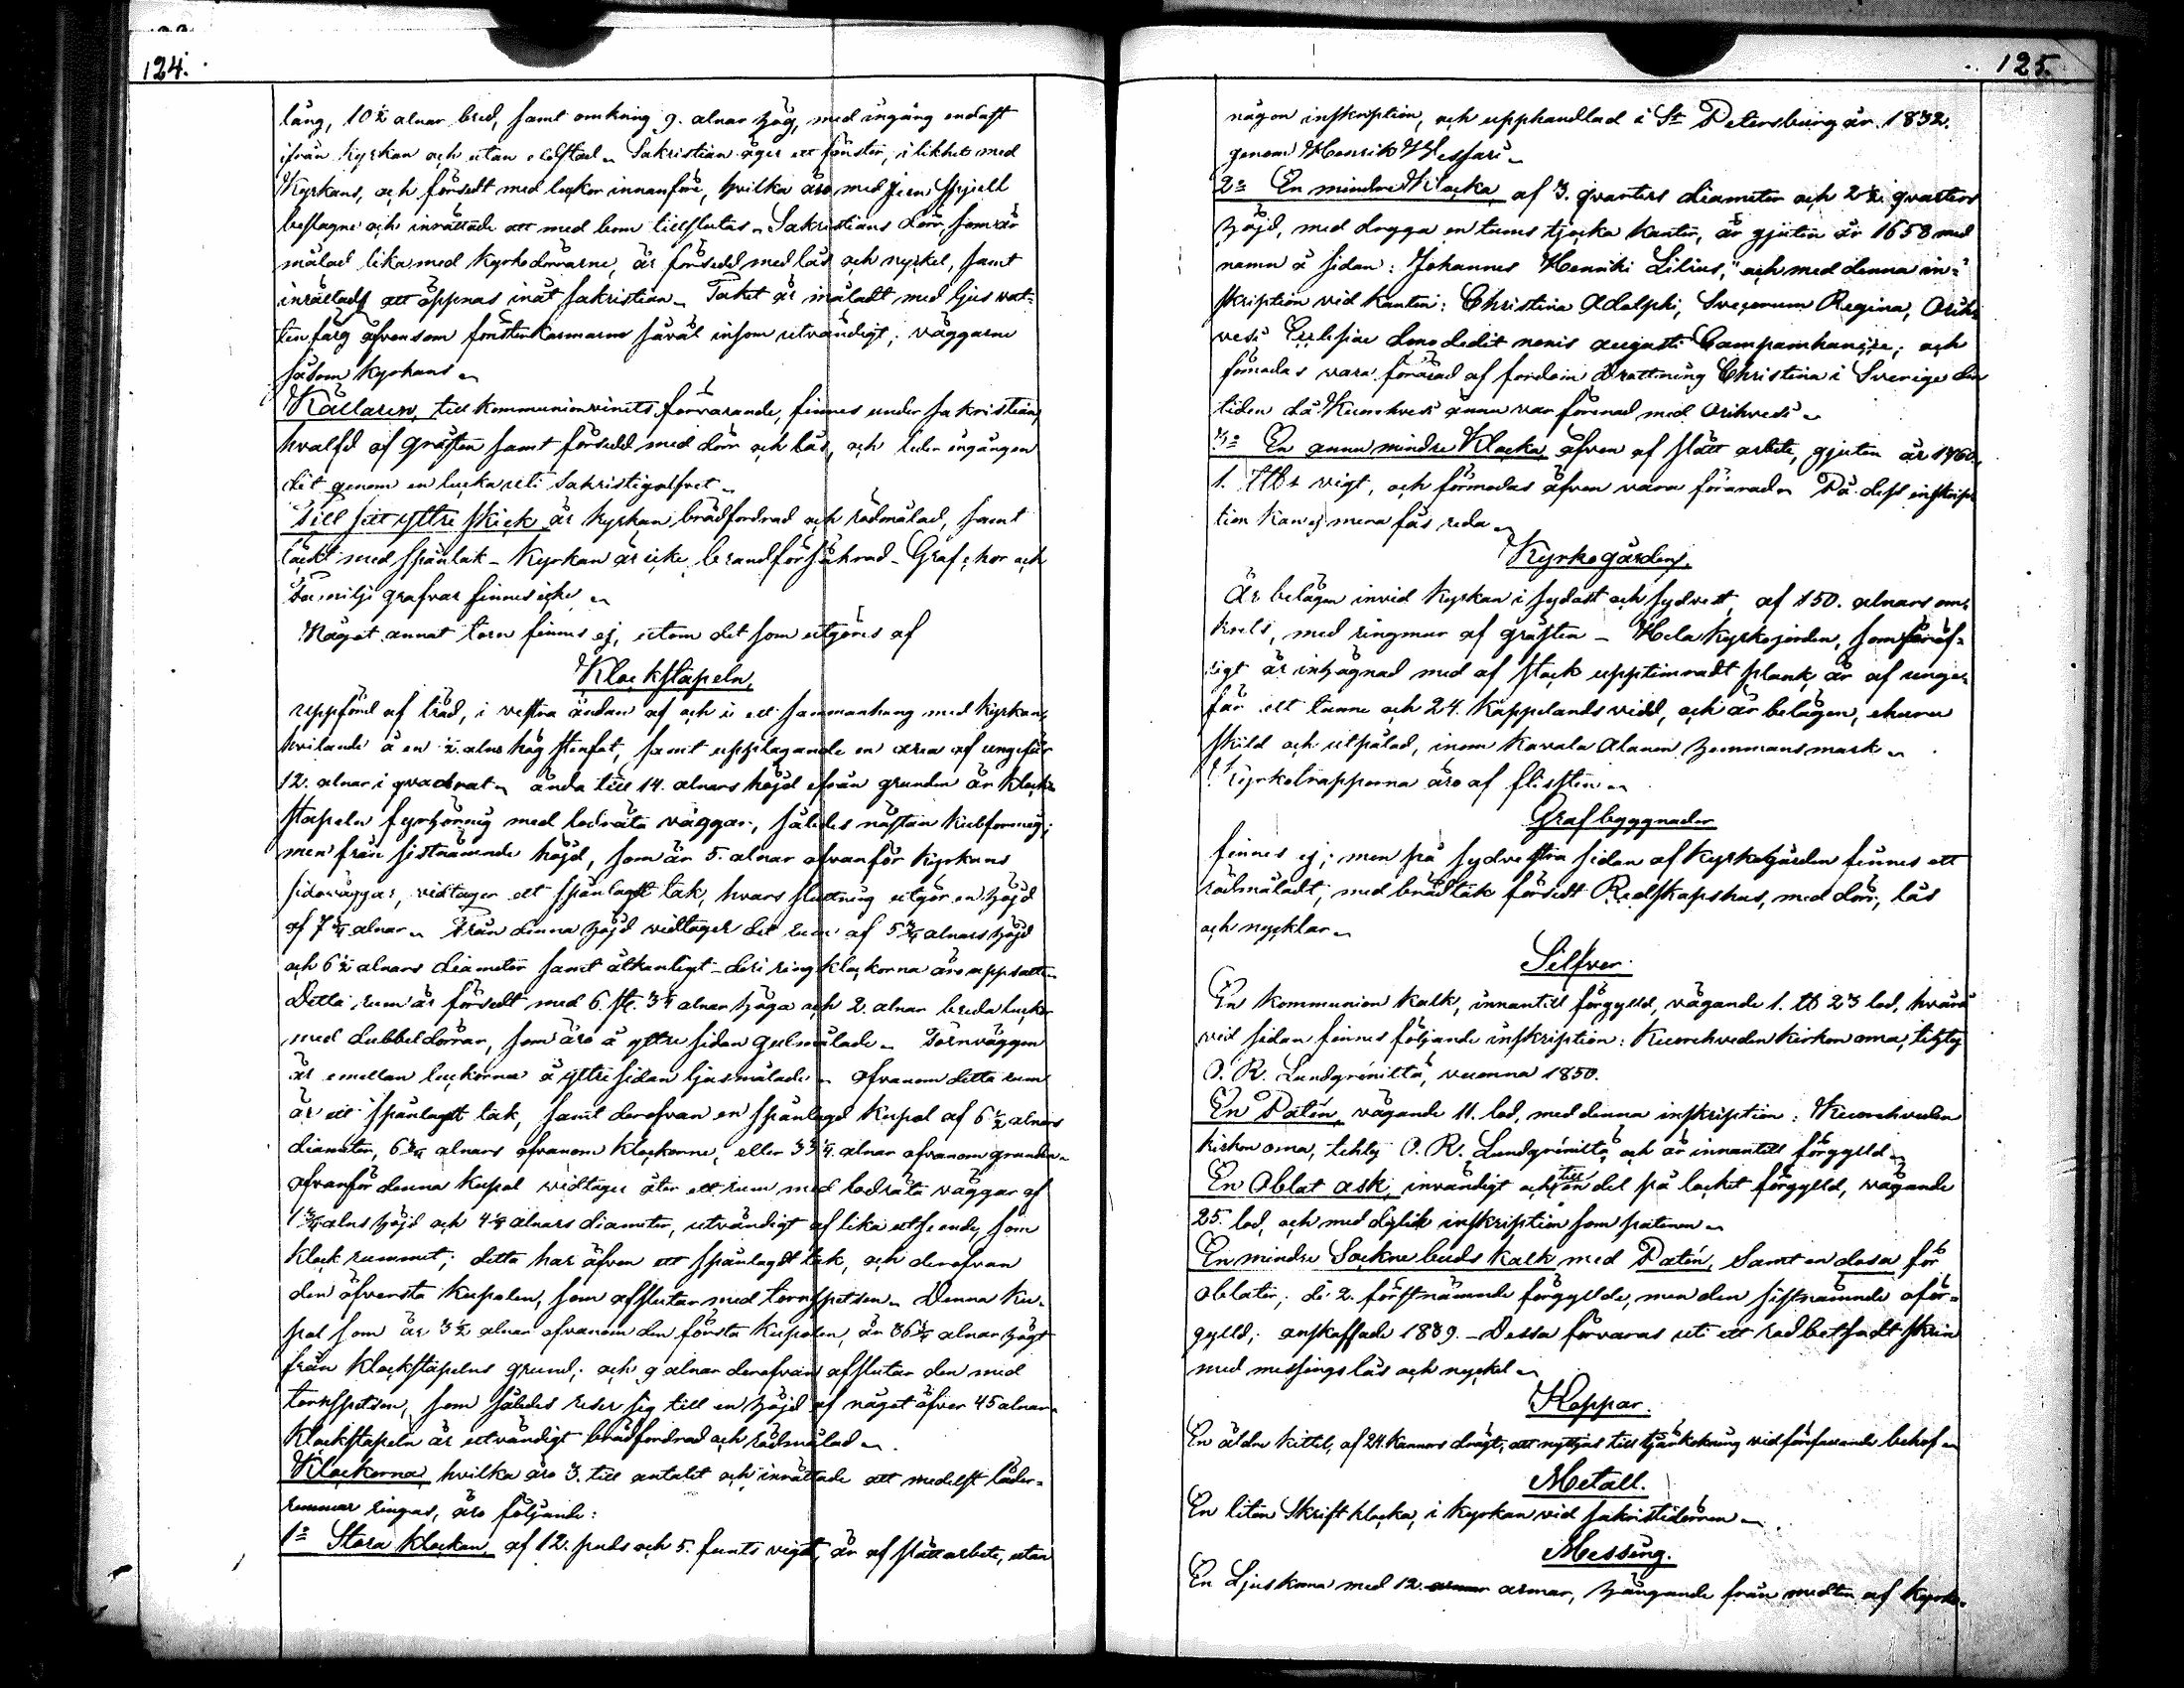 124.
lång, 10½ alnar bred, samt omkring 9. alnar hög, med ingång endast
ifrån Kyrkan och utan eldstad. Sakristian äger ett fönster, i likhet med
Kyrkans, och försedt med luckor innanföre, hvilka äro med jern spjell
beslagne och inrättade att med bom tillslutas. Sakristians dörr, som är
målad lika med Kyrkodörrarne, är försedd med lås och nyckel, samt
inrättad att öppnas inåt sakristian. Taket är måladt med ljus vat-
tenfärg äfvensom fönsterkarmarne såväl in som utvändigt; väggarne
såsom Kyrkans
Källaren, till kommunionvinets förvarande, finnes under sakristian,
hvalfd af gråsten samt försedd med dörr och lås, och leder ingången
dit genom en lucka uti sakristigolfvet
Till sitt yttre skick är Kyrkan brädfordrad och rödmålad, samt
täckt med spåntak - Kyrkan är icke brandförsäkrad - Graf-chor och
Familje grafvar finnes icke
Något annat torn finnes ej, utom det som utgöres af
Klockstapeln,
uppförd af träd, i vestra ändan af och i ett sammanhang med Kyrkan,
hvilande å en ½ alns hög stenfot, samt upptagande en area af ungefär
12. alnar i qvadrat. ända till 14. alnars höjd ifrån grunden är Klock-
stapeln fyrhörnig med lodräta väggar, således nästan kubformig;
men från sistnämnde höjd, som är 5. alnar ofvanför Kyrkans
sidoväggar, vidtager ett spånlagdt tak, hvars sluttning utgör en höjd
af 7¼ alnar. Från denna höjd vidtager det rum af 5¾ alnars höjd
och 6½ alnars diameter samt åtkantigt - deri ringklockorna äro uppsatte
Detta rum är försedt med 6. st. 3¼ alnar höga och 2. alnar breda luckor
med dubbeldörrar, som äro å yttre sidan gulmålade. Tornväggen
är emellan luckorna å yttre sidan ljusmålade. Ofvanom detta rum
är ett spånlagdt tak, samt derofvan en spånlagd Kupol af 6½ alnars
diameter, 6¾ alnars ofvanom Klockorne, eller 33¼ alnar ofvanom grunden.
Ofvanför denna kupol vidtager åter ett rum med lodräta väggar af
1¾ alns höjd och 4½ alnars diameter, utvändigt af lika utseende, som
Klockrummet; detta har äfven ett spånlagdt tak, och derofvan
den öfversta kupolen, som afslutar med tornspetsen. Denna Ku-
pol som är 3½ alnar ofvanom den första kupolen, är 36¾ alnar högt
från Klockstapelns grund; och 9 alnar derofvan afslutar den med
tornspetsen, som således reser sig till en höjd af något öfver 45 alnar.
Klockstapeln är utvändigt brädfordrad och rödmålad
Klockorna, hvilka äro 3. till antalet och inrättade att medelst läder-
remmar ringas, äro följande:
1º Stora Klockan, af 12. puds och 5. funts vigt, är af slätt arbete, utan
125.
någon inskription, och upphandlad i St Petersburg år 1832.
genom Henrik Wessari
2º En mindre Klocka, af 3. qvarters diameter och 2½ qvarters
höjd, med dryga en tums tjocka kanter, är gjuten år 1658 med
namn å sidan: Johannes Henriki Lilius," och med denna in-
skription vid kanten: Christina Adolphi, Svecorum Regina, Orih-
vesi Ecclesiæ dono dedit nonis augusti Campamhancce; och
förmodas vara förärad af fordom Drottning Christina i Sverige den
tiden då Kuorehvesi ännu var förenad med Orihvesi
3º En annu mindre Klocka, äfven af slätt arbete, gjuten år 1760.
1. ttb vigt, och förmodas äfven vara förärad. På dess inskrip-
tion kan ej mera fås reda
Kyrkogården,
Är belägen invid Kyrkan i sydost och sydvest, af 150. alnars om-
krets, med ringmur af gråsten - Hela Kyrkojorden, som
är inhägnad med af stock upptimradt plank, är af unge-
fär ett tunne och 24. Kappelands vidd, och är belägen, ehuru
skild och utpålad, inom Kavala Alanen hemmans mark
Kyrkotrapporna äro af flisten
Grafbyggnader
finnes ej; men på sydvestra sidan af Kyrkogården finnes ett
rödmåladt, med brädtak försedt Redskapshus, med dörr, lås
och nycklar
Silfver.
En Kommunion Kalk, innantill förgylld, vägande 1. lb 23 lod, hvarå
vid sidan finnes följande inskription: Kuorehveden Kirkon oma, tehty
O. R. Lundgréniltä, vuonna 1850.
En Patén, vägande 11. lod, med denna inskription: Kuorehveden
kirkon oma, tehty O. R. Lundgréniltä, och är innantill förgylld
En Oblat ask, invändigt och till en del på locket förgylld, vägande
25. lod, och med dylik inskription som patenen
En mindre Sockne buds Kalk med Patén, Samt en dosa för
oblater; de 2. förstnämnde förgyllde, men den sistnämnde oför-
gylld; anskaffade 1839. - Dessa förvaras uti ett rödbetsadt skrin
med messings lås och nyckel
Koppar.
En äldre kittel, af 24. Kannors drägt, att nyttjas till tjärkokning vid förefallande behof
Metall.
En liten Skriftklocka, i Kyrkan vid sakristidörren
Messing.
En Ljuskrona med 12. armar armar, hängande från midten af Kyrko-